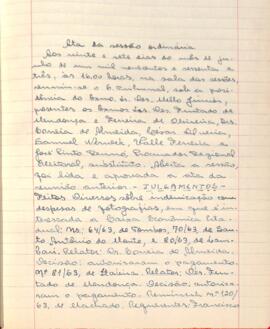 Ata da sessão ordinária
Aos vinte e sete dias do mês de ju-
nho de um mil novecentos e sessenta e
três, às 16,00 horas, na sala das sessões,
reuniu-se o E. Tribunal, sob a presi-
dência do Exmo. Sr. Des. Mello Júnior,
presentes os Exmos. Srs. Des. Furtado de
Mendonça e Ferreira de Oliveira, Drs.
Corrêa de Almeida, Cesar Silveira,
Samuel Werneck, Valle Ferreira e
José Pinto Renno, Procurador Regional
Eleitoral, substituto. Aberta a sessão,
foi lida e aprovada a ata da
reunião anterior - JULGAMENTOS -
Feitos: Diversos sobre indenização com
despesas de fotografias, em que é in-
teressada a Caixa Econômica Esta-
dual: Ns. 64/63, de Pombos, 70/63, de San-
to Antônio do Monte, e 80/63, de Lam-
bari. Relator: Dr. Corrêa de Almeida.
Decisão: autorizaram o pagamento.
Nº 81/63, de Itaúna. Relator: Des. Fur-
tado de Mendonça. Decisão: autoriza-
ram o pagamento. Nominal nº 120/
63, de Machado. Requerentes: Francisco